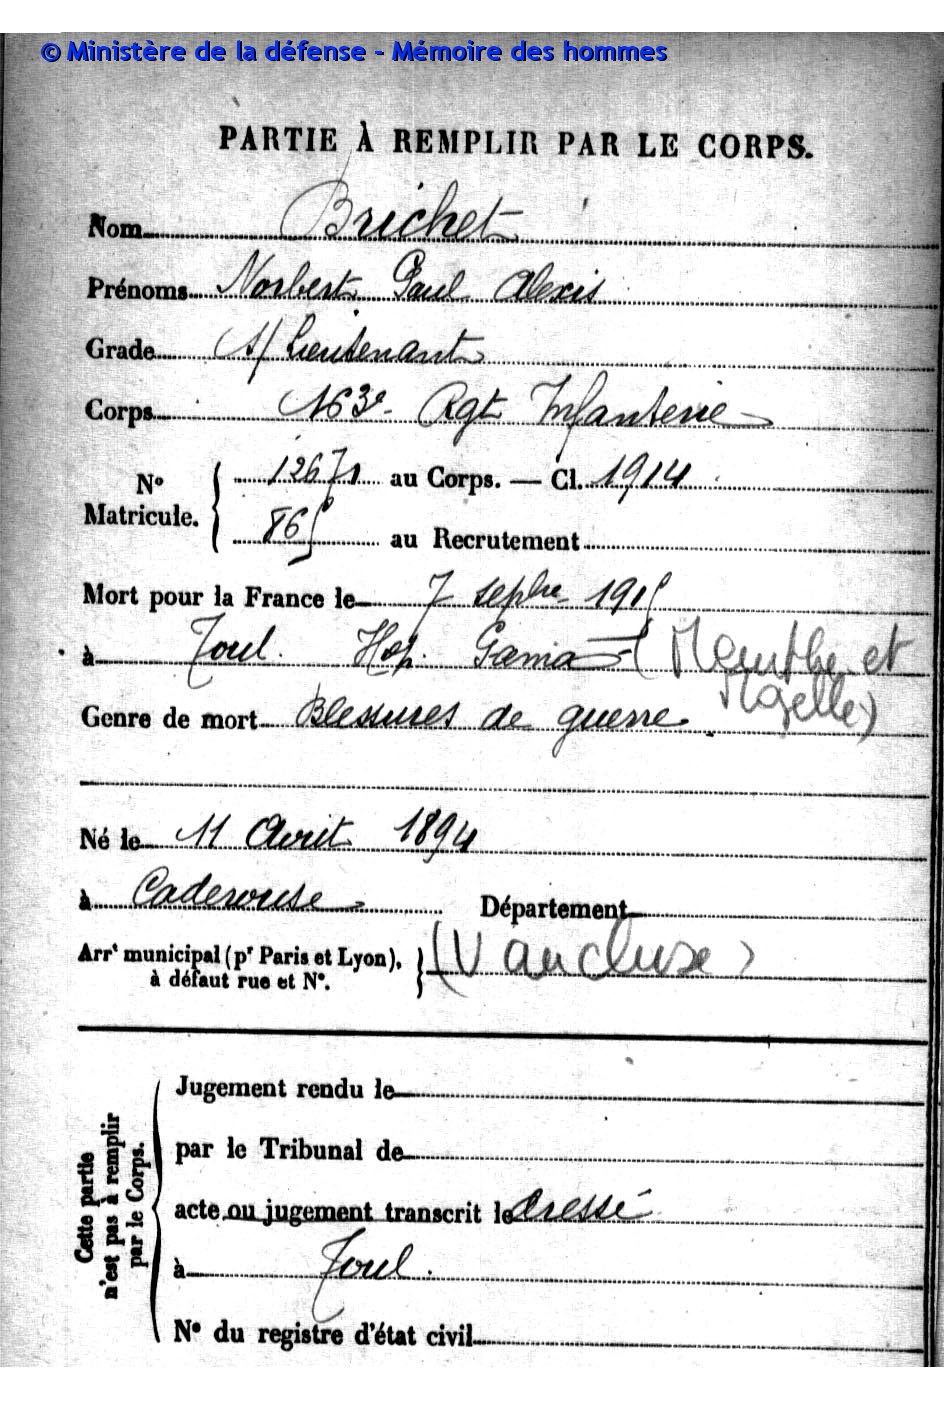 © Ministère de la défense - Mémoire des hommes
PARTIE À REMPLIR PAR LE CORPS.
Nom Brichet
Prénoms Norbert Paul Alexis
Grade S/Lieutenant
Corps 163e Rgt Infanterie
No Matricule. { 12671 au Corps. — Cl. 1914
865 au Recrutement
Mort pour la France le 7 sepbre 1915
à Toul. Hop. Gama (Meurthe et
Moselle)
Genre de mort Blessures de guerre
Né le 11 Avril 1894
à Caderousse Département
Arrt municipal (pr Paris et Lyon), à défaut rue et No. } (Vaucluse)
Cette partie n'est pas à remplir par le Corps.
Jugement rendu le
par le Tribunal de
acte ou jugement transcrit le dressé
à Toul.
No du registre d'état civil